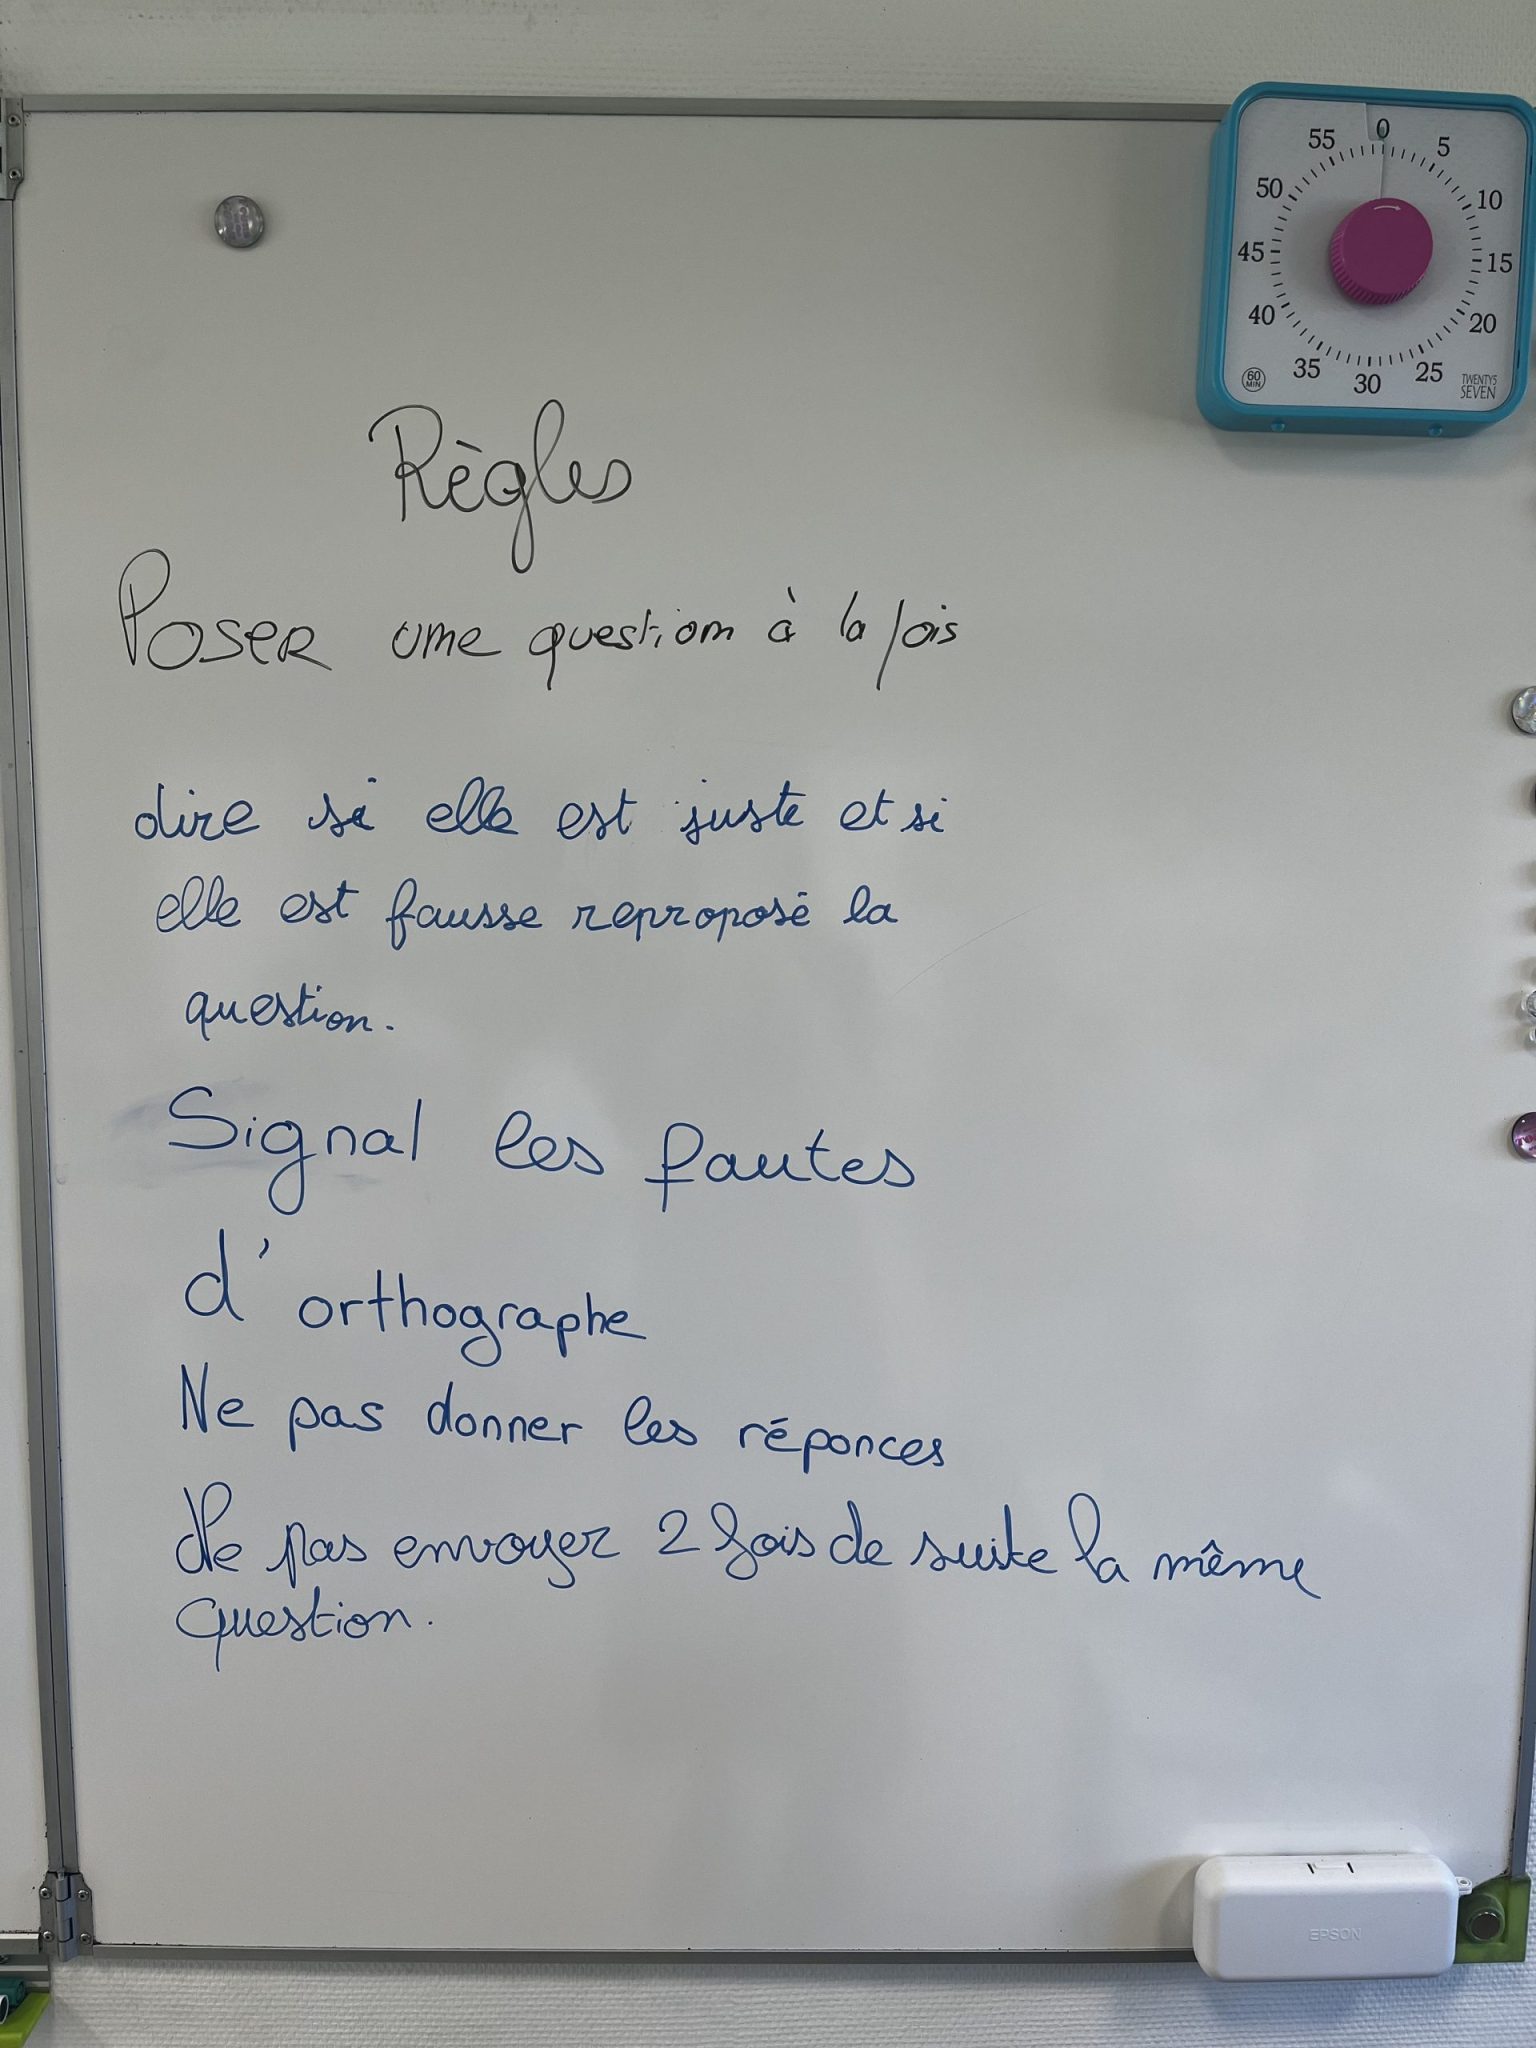 0
55
5
50
10
45
15
40
20
35
25
30
60 MIN
TWENTY5 SEVEN
Règles
Poser une question à la fois
dire si elle est juste et si
elle est fausse reproposé la
question.
Signal les fautes
d'orthographe
Ne pas donner les réponces
Ne pas envoyer 2 fois de suite la même
question.
EPSON